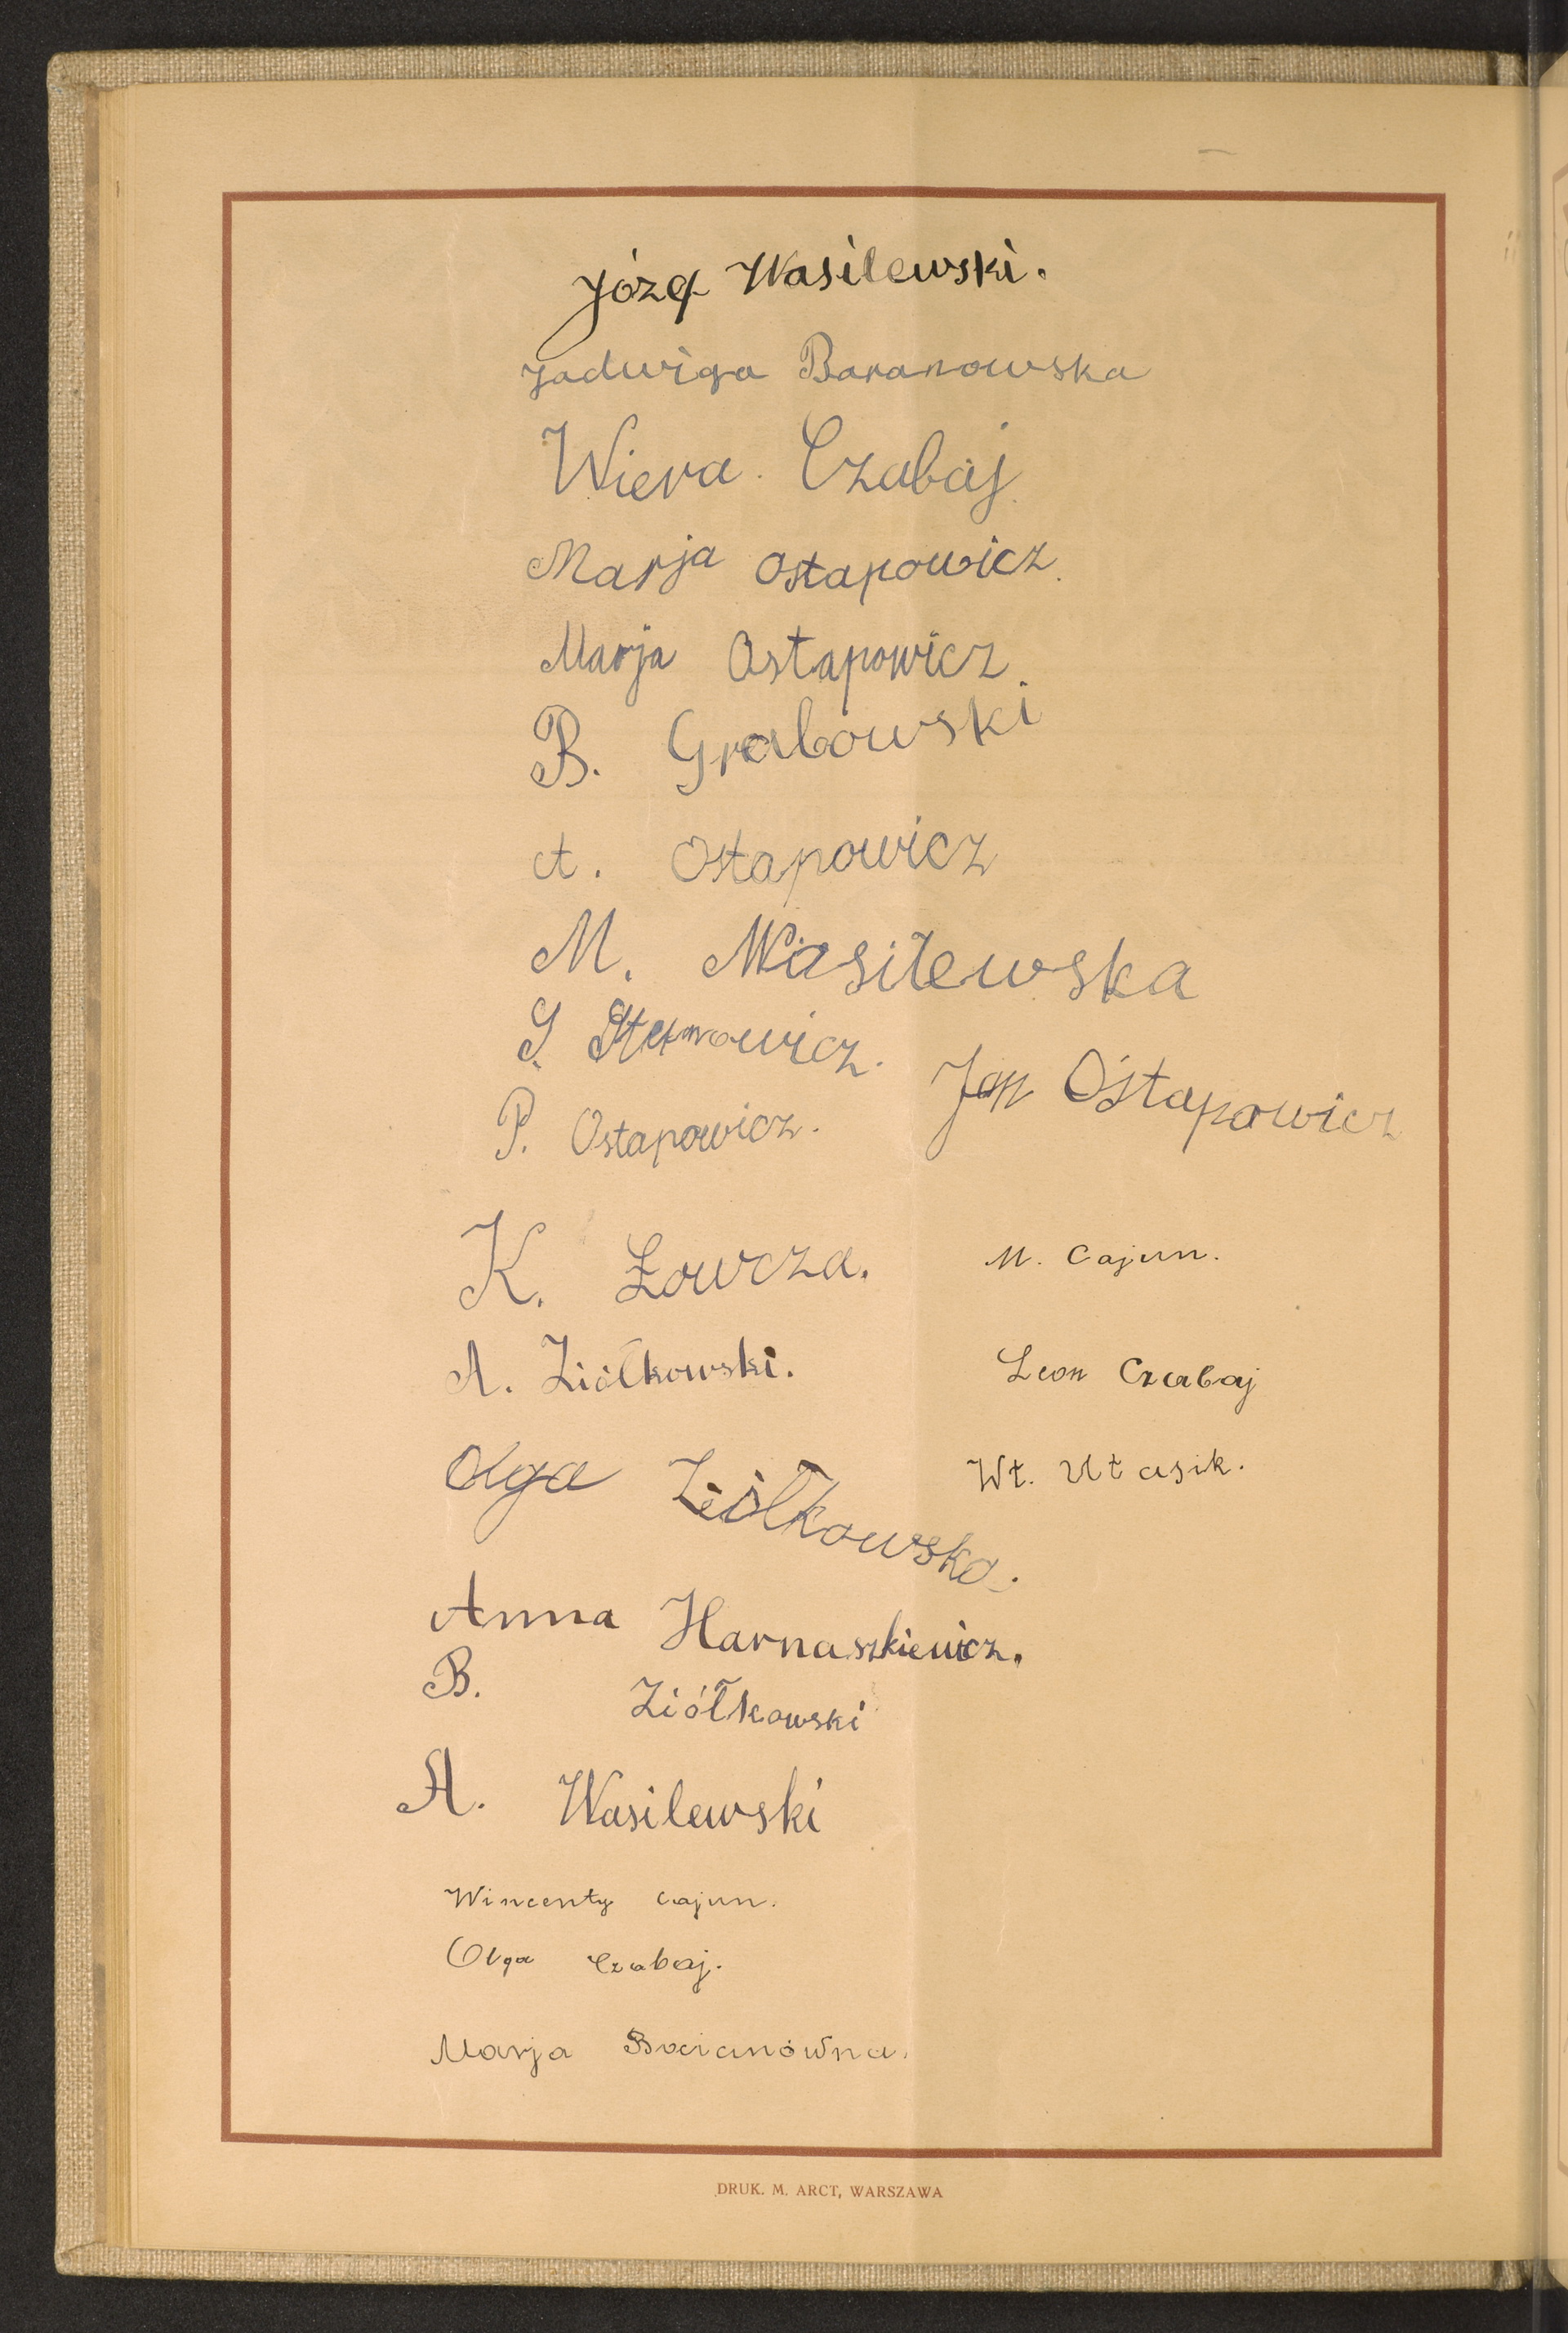 Józef Wasilewski.
Jadwiga Baranowska
Wiera Czabaj
Marja Ostapowicz.
Marja Ostapowicz.
B. Grabowski
A. Ostapowicz
M. Wasilewska
S.
Jan Ostapowicz
P. Ostapowicz.
K. Łowcza.
M. Cajun.
A. Ziółkowski.
Leon Czabaj
Olga Ziółkowska.
Wł.
Anna Harnaszkiewicz.
B. Ziółkowski
A. Wasilewski
Wincenty Cajun.
Olga Czabaj.
Marja Bocianówna.
DRUK. M. ARCT, WARSZAWA